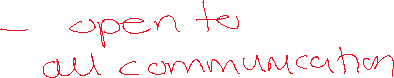 - open to
all communication